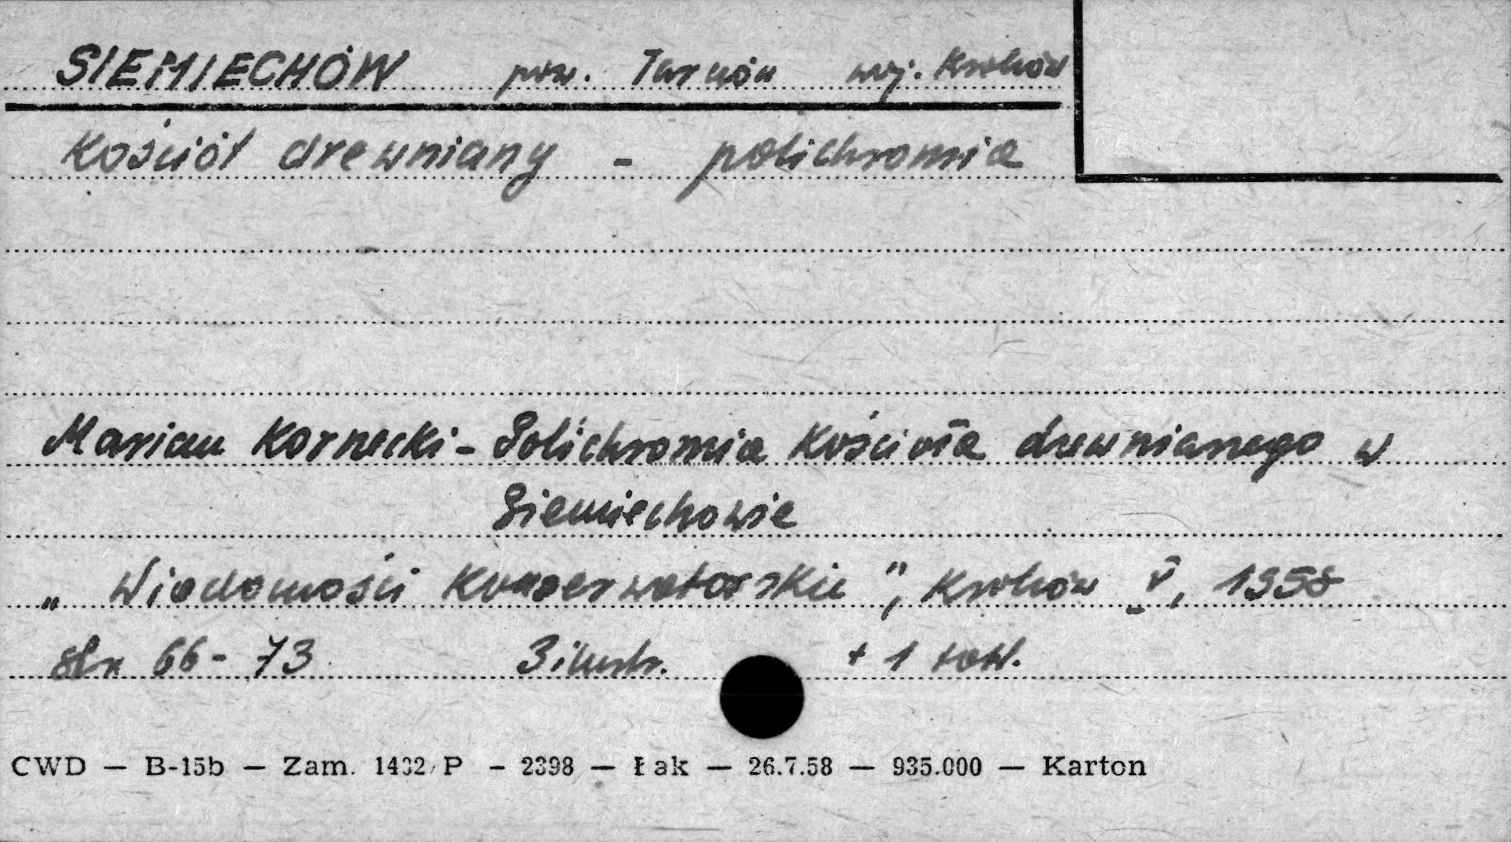 SIEMIECHÓW pow. Tarnów woj. Kraków
Kościół drewniany - polichromia
Marian Kornecki - Polichromia kościoła drewnianego w
Siemiechowie
„Wiadomości Konserwatorskie", Kraków V, 1958
str 66-73 3 ilustr. + 1
CWD — B-15b — Zam. 1432/P - 2398 — Łak — 26.7.58 — 935.000 — Karton